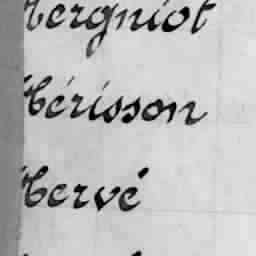 Hergniot
Hérisson
Hervé